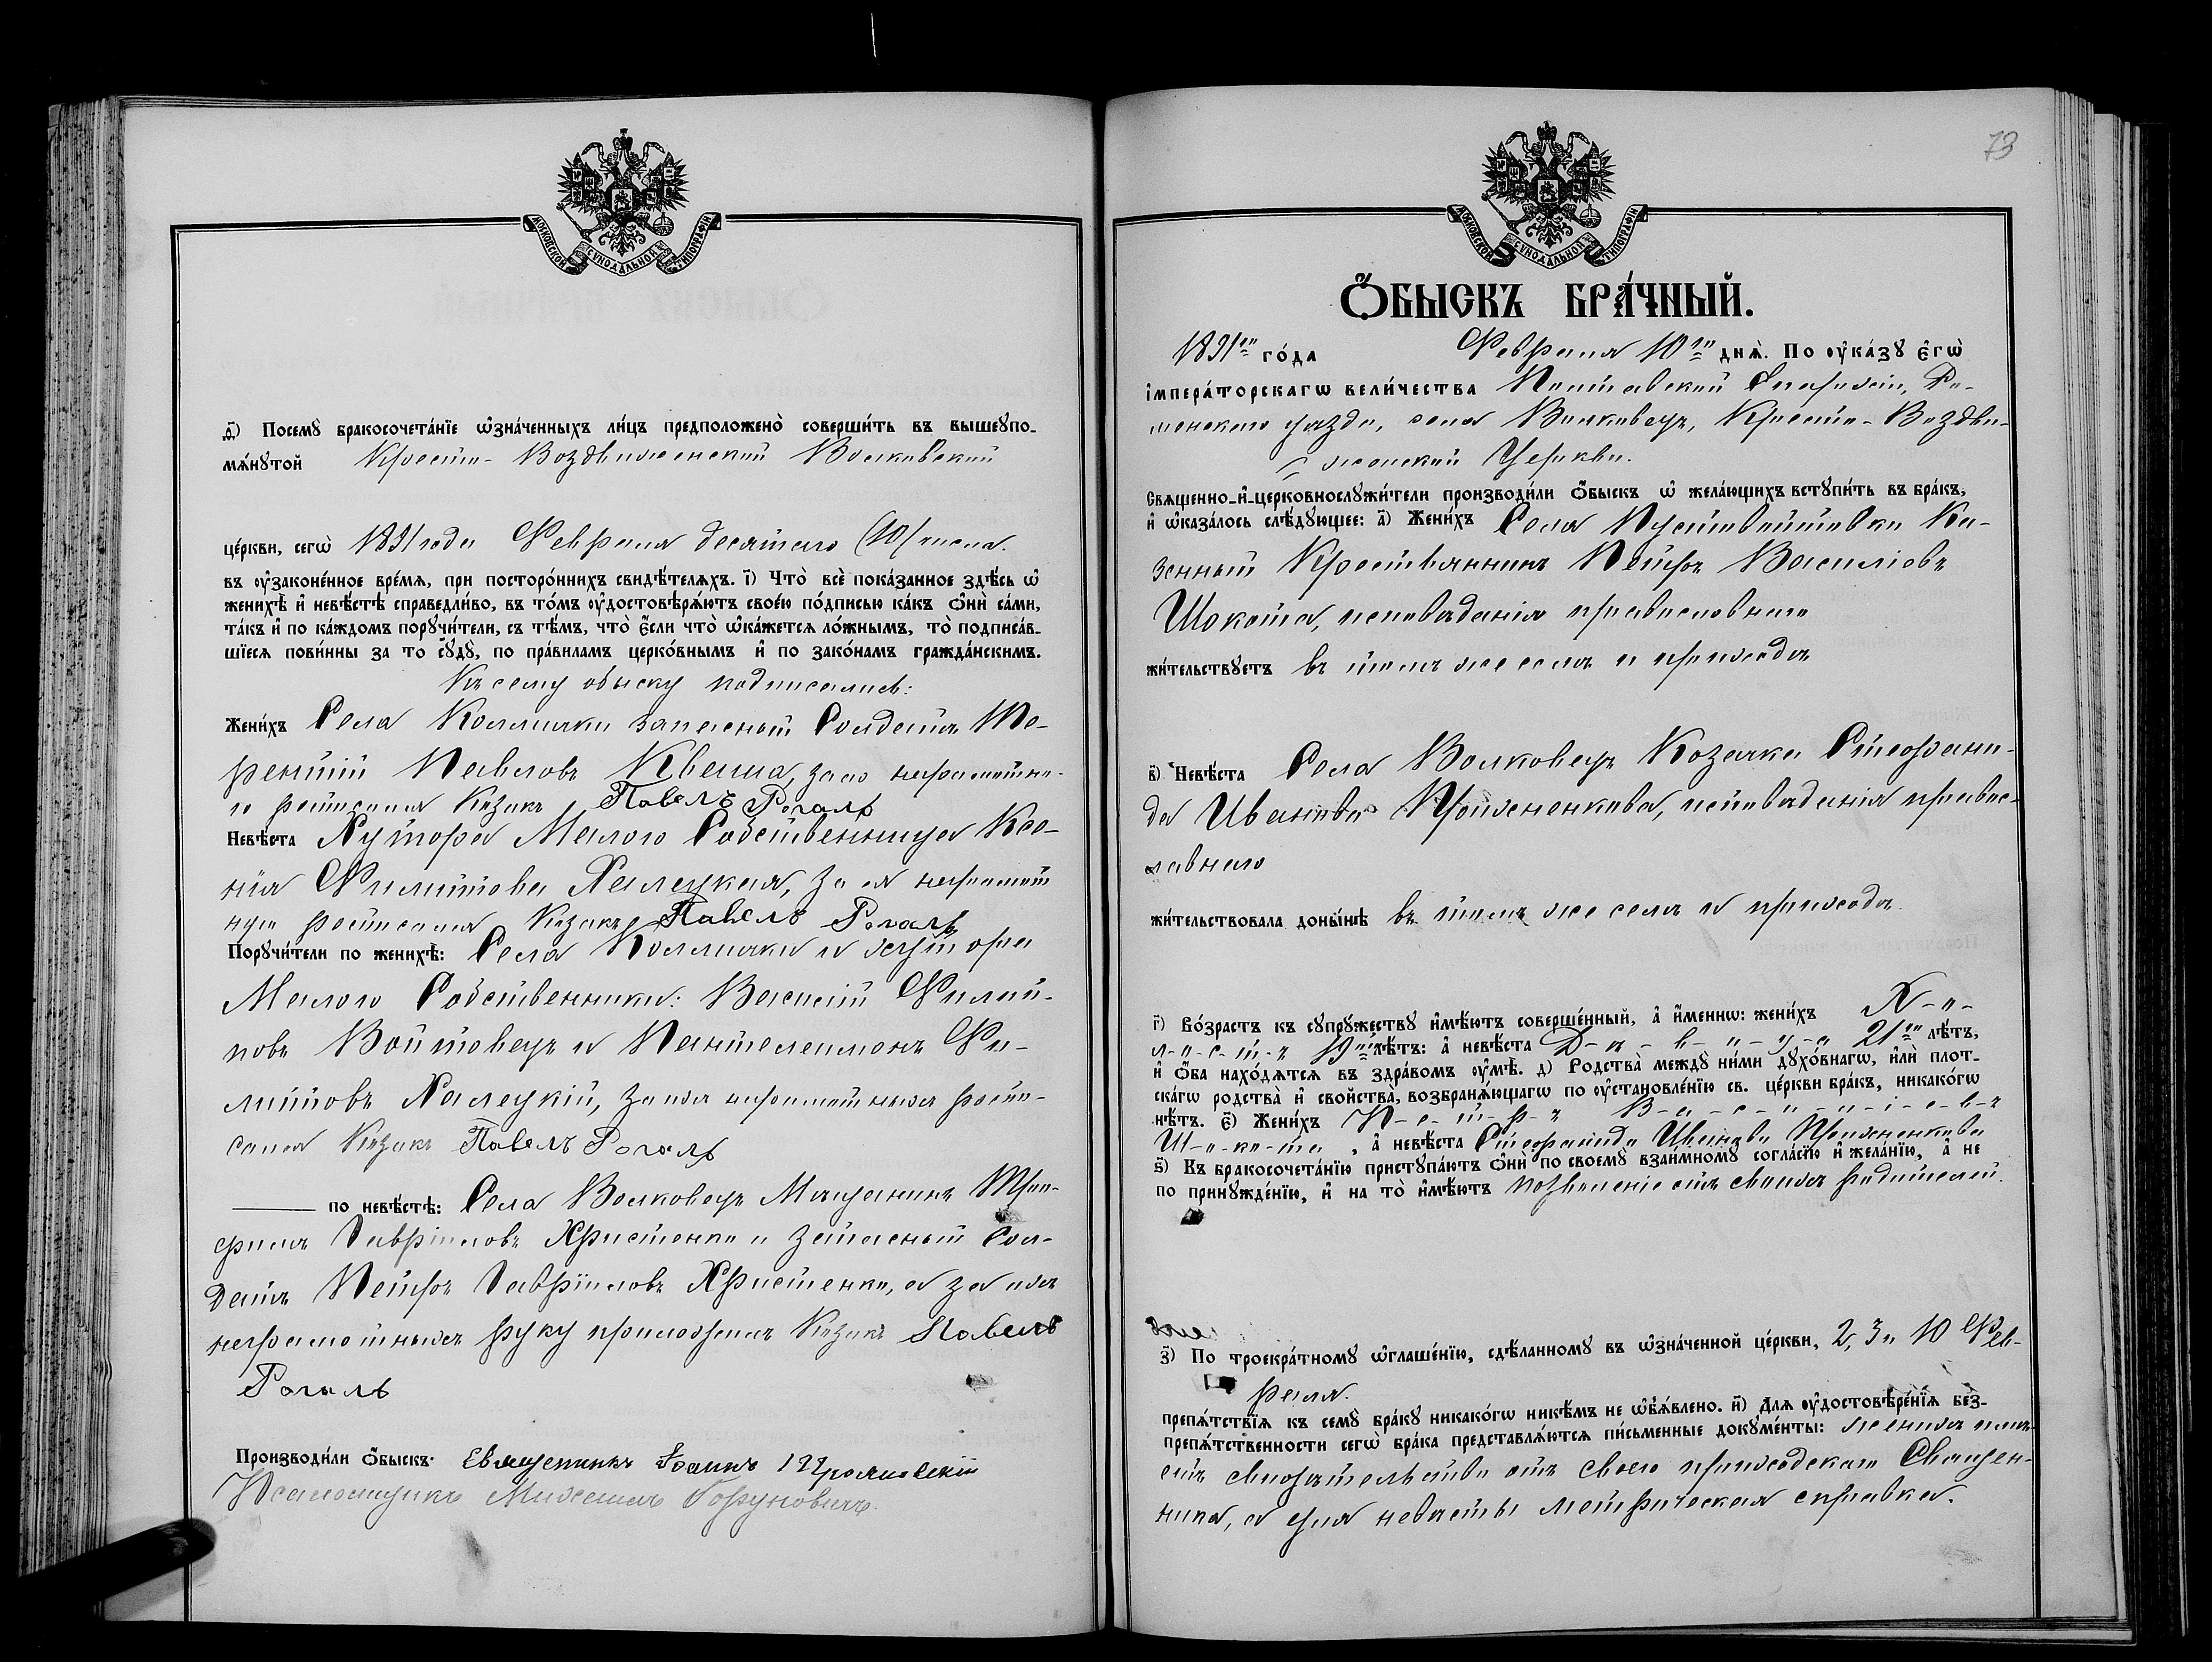 МОСКОВСКОЙ СУНОДАЛЬНОЙ ТИПОГРАФІИ
д҃) Посемꙋ бракосочета́нїе ѡ҆зна́ченныхъ ли́цъ предположено̀ соверши́ть въ вышеꙋпо-
мѧ́нꙋтой Кресто-Воздвиженской Волковской
це́ркви, сегѡ̀ 1891 года Февраля десятаго (10) числа.
въ ᲂу҆законе́нное вре́мѧ, при посторо́ннихъ свидѣ́телѧхъ. і҃) Что̀ всѐ пока́занное здѣ́сь ѡ҆
женихѣ̀ и҆ невѣ́стѣ справедли́во, въ то́мъ ᲂу҆достовѣрѧ́ютъ свое́ю по́дписью ка́къ ѻ҆нѝ са́ми,
та́къ и҆ по ка́ждомъ порꙋчи́тели, съ тѣ́мъ, что̀ е҆́сли что̀ ѡ҆ка́жетсѧ ло́жнымъ, то̀ подписа́в-
шїесѧ пови́нны за то сꙋдꙋ̀, по пра́виламъ церко́внымъ и҆ по зако́намъ гражда́нскимъ.
Къ сему обыску подписались:
Жени́хъ Села Коллички запасный Солдатъ Те-
рентій Павловъ Кваша, за го неграмотна-
го росписался Козакъ Павелъ Рогаль
Невѣ́ста Хутора Малого Собственница Ксе-
нія Филиппова Халецкая, за ея неграмот
ную росписался Козакъ Павелъ Рогаль
Порꙋчи́тели по женихѣ̀: Села Коллички и хутора
Малого Собственники: Василій Филип-
повъ Войтовецъ и Пантелеимонъ Фи-
липповъ Халецкій, за ихъ неграмотныхъ роспи-
сался Козакъ Павелъ Рогаль
по невѣ́стѣ: Села Волковецъ Мѣщанинъ Тро-
фимъ Гавріиловъ Христенко и Запасный Сол-
датъ Петръ Гавріиловъ Христенко, а за ихъ
неграмотныхъ руку приложилъ Козакъ Павелъ
Рогаль
Производи́ли ѻ҆́быскъ: Священникъ Іоаннъ
Псаломщикъ Михаилъ
73
МОСКОВСКОЙ СУНОДАЛЬНОЙ ТИПОГРАФІИ
Ѻ҆́БЫСКЪ БРА́ЧНЫЙ.
1891го го́да Февраля 10го днѧ̀. По ᲂу҆ка́зꙋ є҆гѡ̀
і҆мпера́торскагѡ вели́чества Полтавской Епархіи, Ро-
менского уѣзда, села Волковецъ, Кресто-Воздви-
женской Церкви.
Свѧще́нно-и҆-церковнослꙋжи́тели производи́ли ѻ҆́быскъ ѡ҆ жела́ющихъ встꙋпи́ть въ бра́къ,
и҆ ѡ҆каза́лось слѣ́дꙋющее: а҃) Жени́хъ Села Пустовойтовки Ка-
зенный Крестьянинъ Петръ Василіевъ
Шокота, исповѣданія православнаго
жи́тельствꙋетъ въ томъ же селѣ и приходѣ
в҃) Невѣ́ста Села Волковецъ Козачка Стефани-
да Иванова Проженкова, исповѣданія право-
славнаго
жи́тельствовала доны́нѣ въ томъ же селѣ и приходѣ.
г҃) Во́зрастъ къ сꙋпрꙋ́жествꙋ и҆мѣ́ютъ соверше́нный, а҆ и҆́меннѡ: жени́хъ Х-о-
л-о-с-т-ъ 19 лѣ́тъ: а҆ невѣ́ста Д-ѣ-в-и-ц-а 21го лѣ́тъ,
и҆ ѻ҆́ба нахо́дѧтсѧ въ здра́вомъ ᲂу҆мѣ̀. д҃) Родства̀ междꙋ̀ ни́ми дꙋхо́внагѡ, и҆лѝ плот-
ска́гѡ родства̀ и҆ свойства̀, возбранѧ́ющагѡ по ᲂу҆становле́нїю св. це́ркви бра́къ, никако́гѡ
нѣ́тъ. є҃) Жени́хъ П-е-т-р-ъ В-а-с-и-л-і-е-в-ъ
Ш-о-ко-та, а҆ невѣ́ста Стефанида Иванова Проженкова
ѕ҃) Къ бракосочета́нїю пристꙋпа́ютъ ѻ҆нѝ по своемꙋ̀ взаи́мномꙋ согла́сїю и҆ жела́нїю, а҆ не
по принꙋжде́нїю, и҆ на то̀ и҆мѣ́ютъ позволеніе отъ своихъ родителей.
з҃) По троекра́тномꙋ ѡ҆глаше́нїю, сдѣ́ланномꙋ въ ѡ҆зна́ченной це́ркви, 2, 3 и 10 Фев-
раля.
препѧ́тствїѧ къ семꙋ̀ бра́кꙋ никако́гѡ никѣ́мъ не ѡ҆б̾ѧ́влено. и҃) Длѧ ᲂу҆достовѣре́нїѧ без-
препѧ́тственности сегѡ̀ бра́ка представлѧ́ютсѧ пи́сьменные докꙋме́нты: жениха имѣ-
етъ свидѣтельство отъ своего приходскаго Священ-
ника, а для невѣсты метрическая справка.